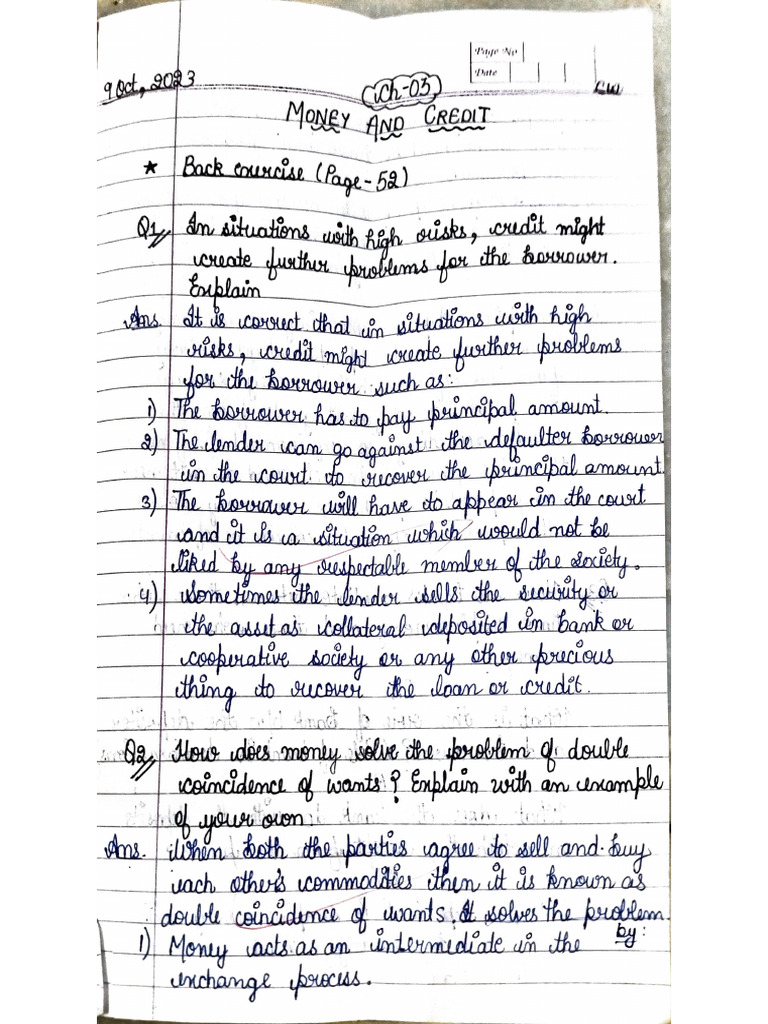 Page No
Date
9 Oct, 2023
Ch-03
CW
MONEY AND CREDIT
* Back exercise (Page-52)
Q1 In situations with high risks, credit might
create further problems for the borrower.
Explain
Ans. It is correct that in situations with high
risks, credit might create further problems
for the borrower such as:
1) The borrower has to pay principal amount.
2) The lender can go against the defaulter borrower
in the court to recover the principal amount.
3) The borrower will have to appear in the court
and it is a situation which would not be
liked by any respectable member of the society.
4) Sometimes the lender sells the security or
the asset as collateral deposited in bank or
cooperative society or any other precious
thing to recover the loan or credit.
Q2 How does money solve the problem of double
coincidence of wants? Explain with an example
of your own
Ans. When both the parties agree to sell and buy
each other's commodities then it is known as
double coincidence of wants. It solves the problem
by:
1) Money acts as an intermediate in the
exchange process.